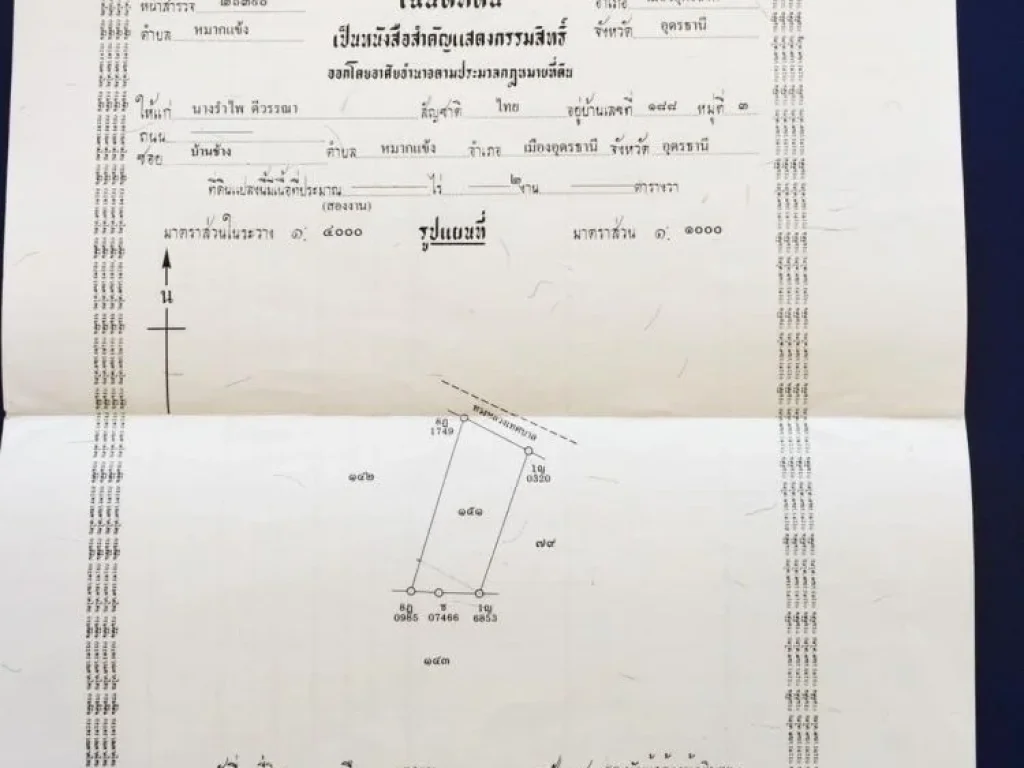 หน้าสำรวจ
ตำบล หมากแข้ง
เป็นหนังสือสำคัญแสดงกรรมสิทธิ์
จังหวัด อุดรธานี
ออกโดยอาศัยอำนาจตามประมวลกฎหมายที่ดิน
ให้แก่ นางรำไพ ดีวรรณา สัญชาติ ไทย อยู่บ้านเลขที่ ๑๘๘ หมู่ที่ ๓
ถนน
ซอย บ้านช้าง ตำบล หมากแข้ง อำเภอ เมืองอุดรธานี จังหวัด อุดรธานี
ที่ดินแปลงนี้มีเนื้อที่ประมาณ ไร่ ๒ งาน ตารางวา
(สองงาน)
มาตราส่วนในระวาง ๑: ๔๐๐๐ รูปแผนที่ มาตราส่วน ๑: ๑๐๐๐
น
ถนนหลวงเทศบาล
8ฎ
1749
1ญ
0320
๑๔๒
๑๕๑
๗๙
8ฎ
0985
ช
07466
1ญ
6853
๑๔๓